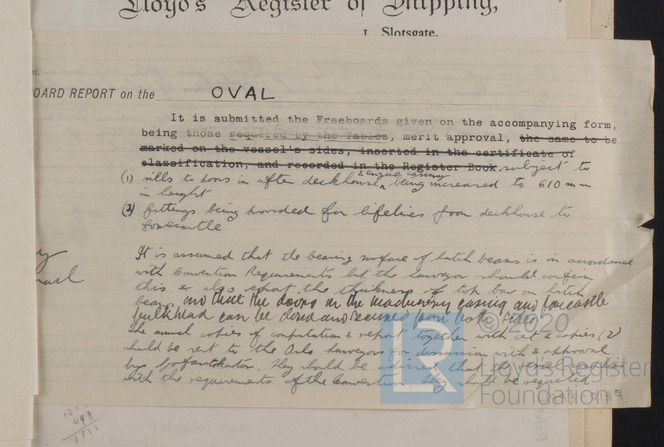 Lloyd's Register of Shipping,
1, Slotsgate.
OARD REPORT on the OVAL
It is submitted the Freeboards given on the accompanying form,
being those required by the Tables, merit approval, the same to be
marked on the vessel's sides, inserted in the certificate of
classification, and recorded in the Register Book subject to
(1) sills to doors in after deckhouse & engine casing being increased to 610 mm
in height
(2) fittings being provided for lifelines from deckhouse to
forecastle
It is assumed that the bearing surface of hatch beams is in accordance
with Convention Requirements but the surveyor should confirm
this & also report the thickness of top bar on hatch
beams, and that the doors in the machinery casing and forecastle
bulkhead can be closed and secured from both sides.
The usual copies of computation & report together with cert & copies (2)
should be sent to the Oslo Surveyors for discussion with & approval
by Sjofartskontor. They should be advised that
with the requirements of the Convention should be requested
© 2020
LR
Lloyd's Register
Foundation